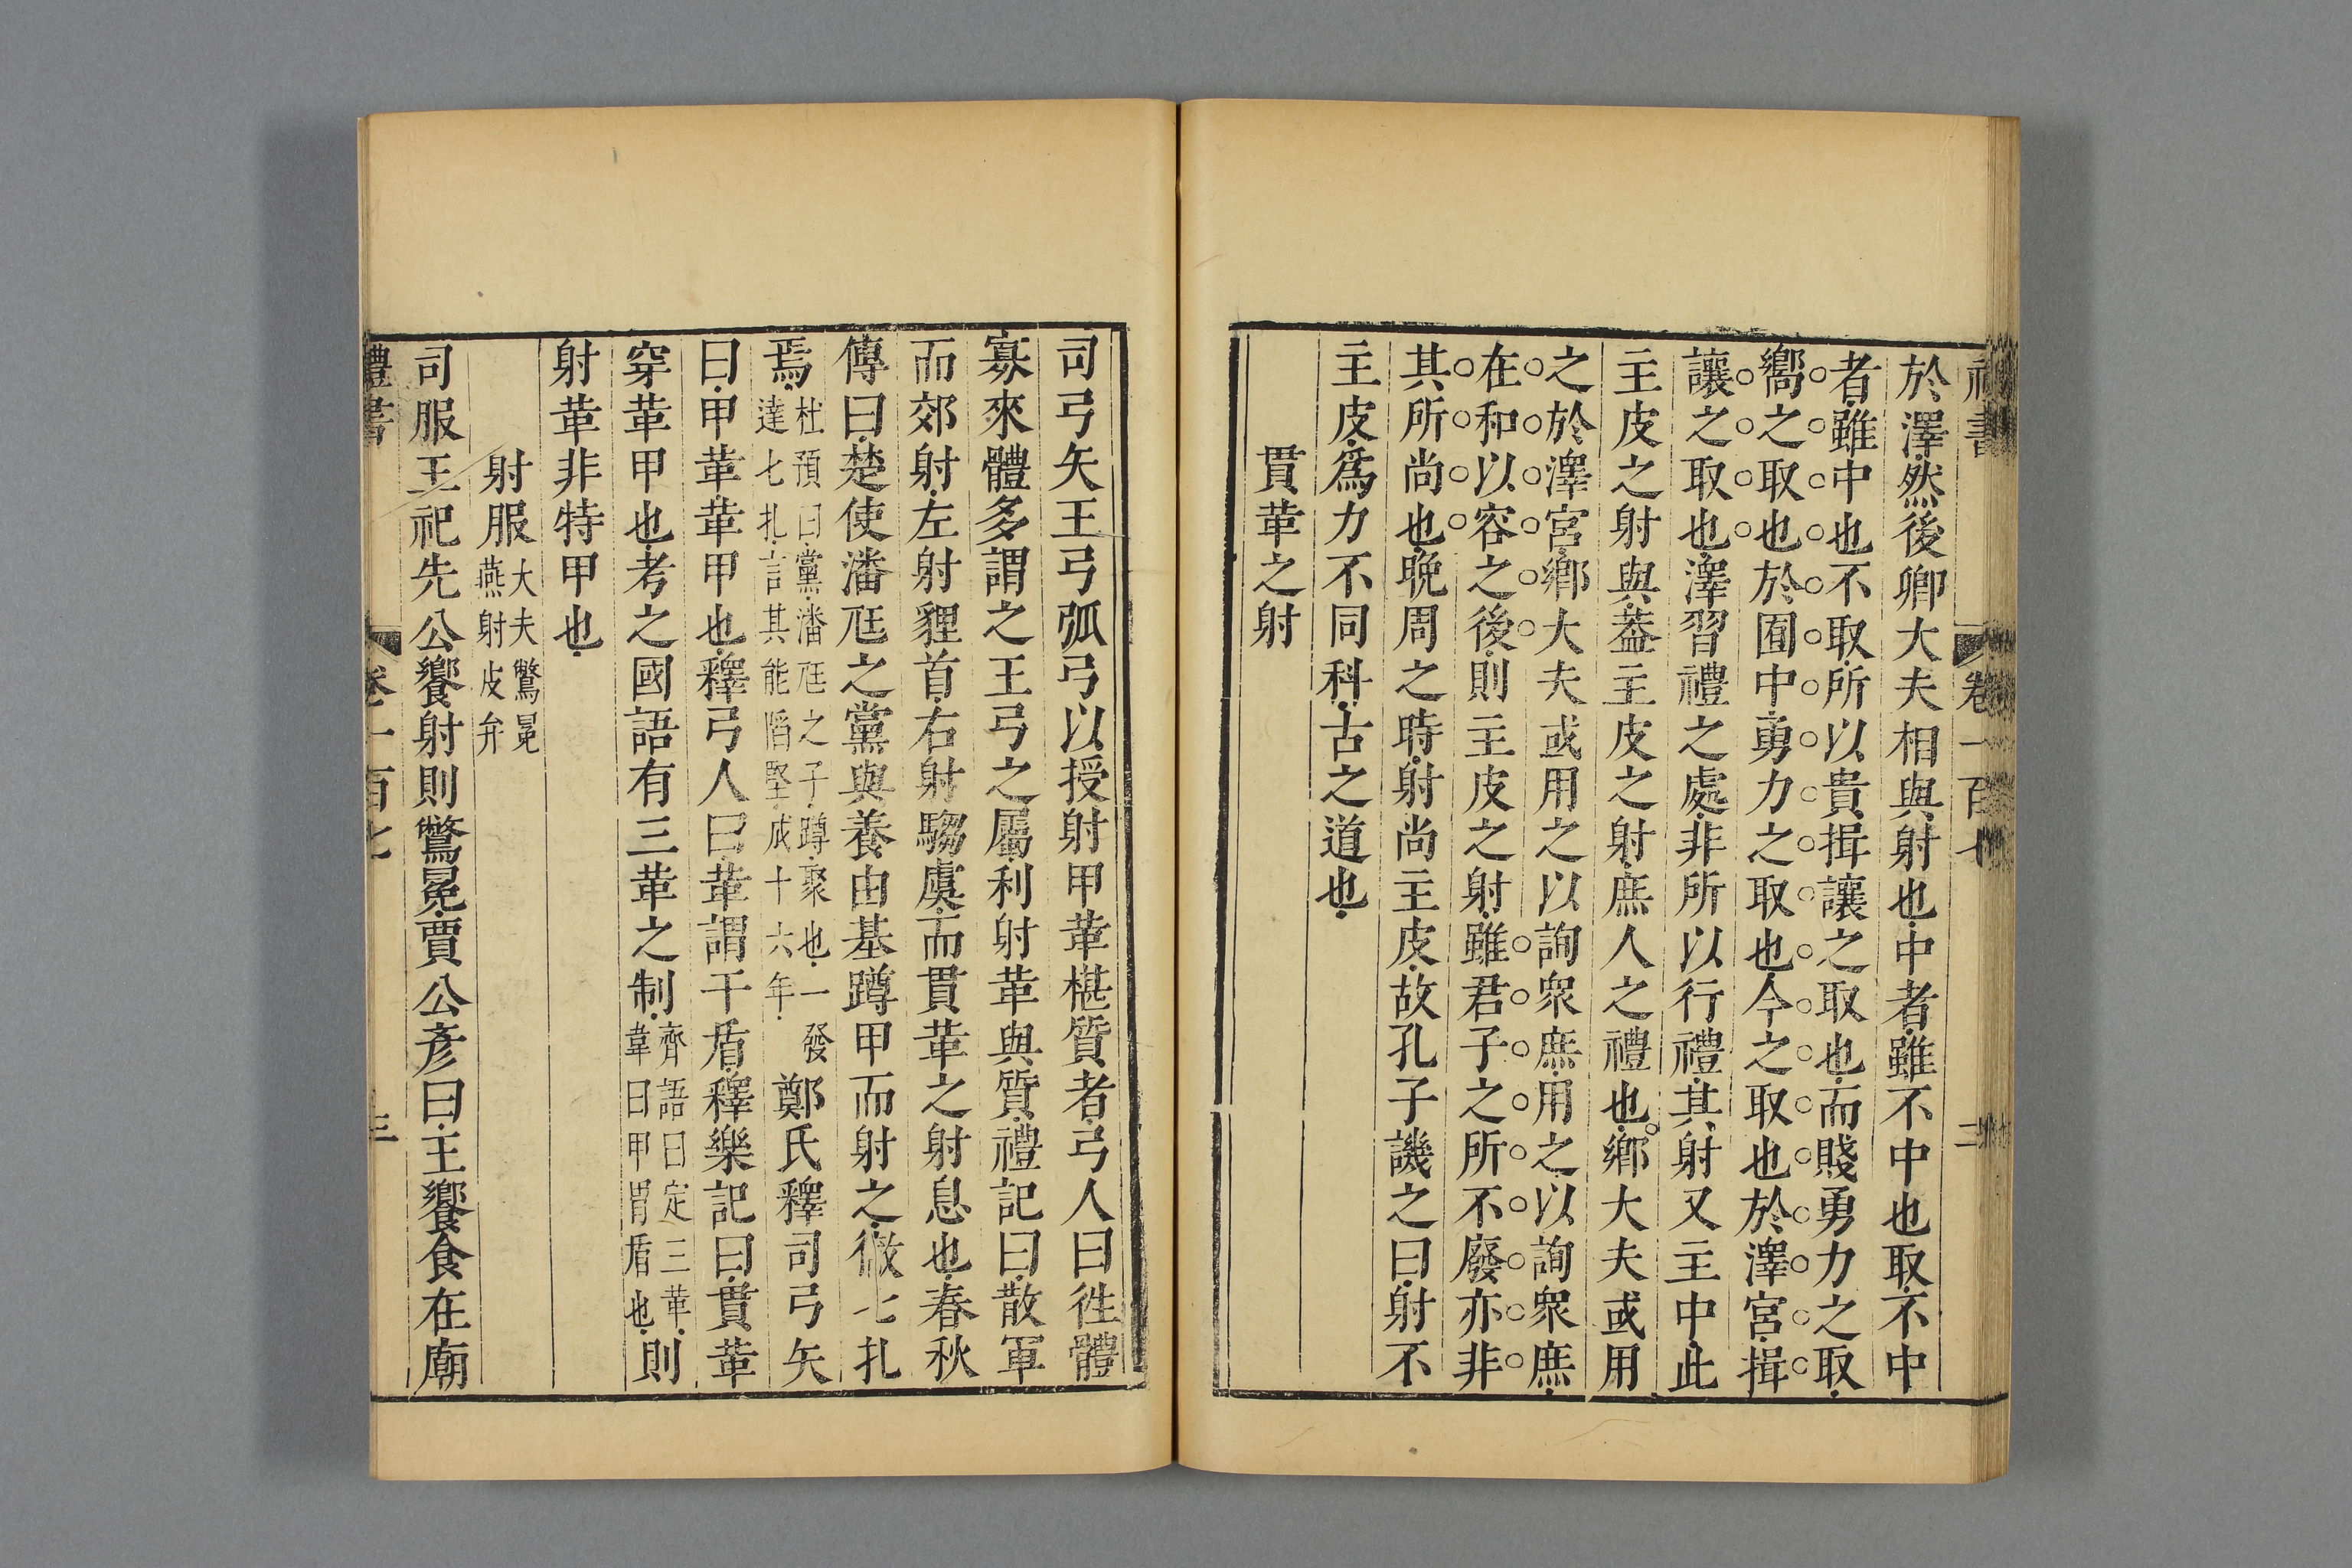 禮書 卷一百七 二
於澤然後卿大夫相與射也中者雖不中也取不中
者雖中也不取所以貴揖讓之取也而賤勇力之取
嚮之取也於囿中勇力之取也今之取也於澤宮揖
讓之取也澤習禮之處非所以行禮其射又主中此
主皮之射與葢主皮之射庶人之禮也鄉大夫或用
之於澤宮鄉大夫或用之以詢衆庶用之以詢衆庶
在和以容之後則主皮之射雖君子之所不廢亦非
其所尚也晚周之時射尚主皮故孔子譏之曰射不
主皮爲力不同科古之道也
貫革之射
司弓矢王弓弧弓以授射甲革椹質者弓人曰徃體
寡來體多謂之王弓之屬利射革與質禮記曰散軍
而郊射左射貍首右射騶虞而貫革之射息也春秋
傳曰楚使潘尫之黨與養由基蹲甲而射之徹七扎
焉杜預曰黨潘尫之子蹲聚也一發達七扎言其能陷堅成十六年鄭氏釋司弓矢
曰甲革革甲也釋弓人曰革謂干盾釋樂記曰貫革
穿革甲也考之國語有三革之制齊語曰定三革韋曰甲胃盾也則
射革非特甲也
射服大夫鷩冕燕射皮弁
司服王祀先公饗射則鷩冕賈公彥曰王饗食在廟
禮書 卷一百七 三